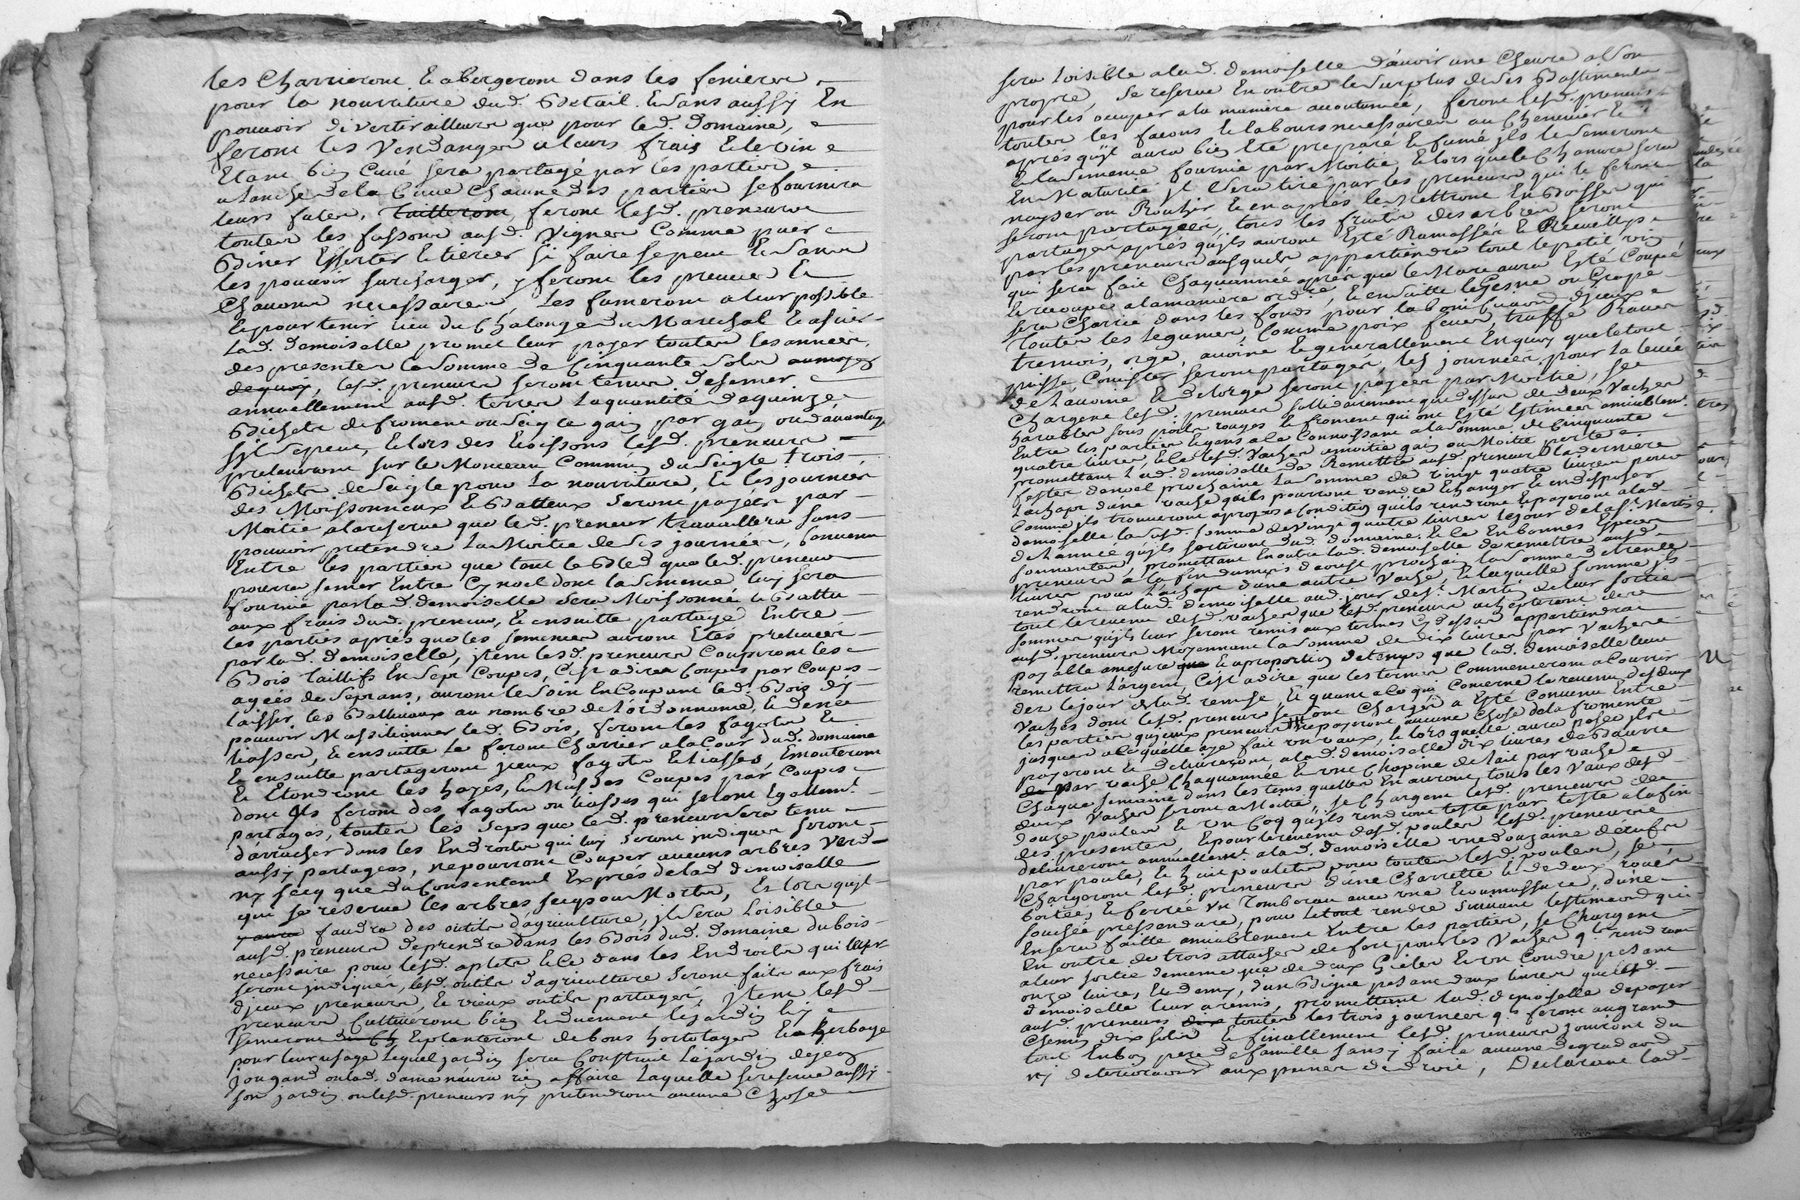 les Charrieront & abergeront dans les fenieres
pour la nourriture dud. Bétail & sans aussy En
pouvoir divertir ailleurs que pour led. Domaine,
feront les Vendanges a leurs frais & le vin
Etant bien Cuvé sera partagé par les parties
a l'anche de la Cuve Chacune des parties se fournira
leurs futes, tailleront, feront lesd. preneurs
toutes les fassons ausd. Vignes Comme puer
Biner Esserter & tiercer si faire se peut & sans
les pouvoir surcharger, y feront les preuves &
Chavons necessaires, les fumeront a leur possible
& pour tenir lieu du Chalonge du Marechal & assier
lad. Demoiselle promet leur payer toutes les années
des presentes la somme de Cinquante sols
de quoy, lesd. preneurs seront tenus de semer
annuellement ausd. terres la quantité d'aquinze
Bichets de froment ou seigle gain par gain ou d'avantage
s'il se peut, & lors des moissons lesd. preneurs
preleveront sur le Monceau Commun du seigle trois
Bichets de seigle pour la nourriture, & les journées
des Moissonneurs & Batteurs seront payées par
Moitié a la reserve que led. preneur travaillera sans
pouvoir pretendre la Moitié de ses journées, Convenu
Entre les parties que tout le Bled que led. preneur
pourra semer Entre Cy noel dont la semence luy sera
fournie par lad. demoiselle sera Moissonné & Battu
aux frais dud. preneur, & ensuitte partagé Entre
les parties après que les semences auront Etés prelevées
par lad. Demoiselle, ytem lesd. preneurs Couperont les
Bois taillifs En sept Coupes, C'est a dire Coupes par Coupes
agées de sept ans, auront le soin En Coupant led. Bois d'y
laisser les Balliveaux au nombre de l'ordonnance, & de ne
pouvoir Massionner led. Bois, feront les fagots &
liasses, & ensuitte le feront Charrier a la Cour dud. domaine
& ensuitte partageront yceux fagots & liasses, Emouteront
& Etondront les hayes, & Buissons Coupes par Coupes
dont Ils feront des fagots ou liasses qui seront Egallemt.
partages, toutes les seps que led. preneur sera tenu
d'arracher dans les Endroits qui luy seront indiqués seront
aussy partages, ne pourront Couper aucuns arbres Verd
ny secq que du Consentement Exprès de lad. demoiselle
qui se reserve les arbres secq ou Morts, Et lors qu'il
faudra des outils d'agriculture, yl sera loisible
ausd. preneurs de prendre dans les Bois dud. domaine du bois
necessaire pour lesd. aplets & Ce dans les Endroits qui leur
seront indiqués, lesd. outils d'agriculture seront faits aux frais
d'yceux preneurs, & vieux outils partagés, ytem lesd.
preneurs Cultiveront bien & duement le jardin luy
semeront & planteront de bons hortolages & herbage
pour leur usage lequel jardin sera Construit le jardin de jean
jougand ou lad. dame n'aura rien affaire laquelle se reserve aussy
son jardin ou lesd. preneurs n'y pretendront aucune Chose
sera loisible a lad. Demoiselle d'avoir une Chevre a son
propre, se reserve En outre le surplus de ses Bastiments
pour les occuper a la maniere accoutumée, feront lesd. preneurs
toutes les façons & labours necessaires au Chenevier &
après qu'yl aura bien Eté preparé & fumé yls le semeront
& la semence fournie par Moitié, & lors que le Chanvre sera
En Maturité yl sera tiré par les preneurs qui le feront
nayser ou Routhir & en après le Mettront En Bosses qui
seront partagées, tous les fruits des arbres seront
partagés après qu'yls auront Esté Ramassés & Recueillis
par les preneurs ausquels appartiendra tout le petit vin
qui sera fait Chaqu'année après que le Marc aura Esté Coupé
& recoupé a la maniere ord.re, & ensuitte le Gesne ou Crape
sera Charrié dans les fonds pour la bonifications d'yceux
toutes les legumes, Comme poix feves truffe Raves
tremois, orge, avoine & generallement En quoy que le tout
puisse Consister seront partagés, les journées pour la levée
de l'avoine & de l'orge seront payées par Moitié, se
Chargent lesd. preneurs sollidairement que dessus de deux Vaches
harables sous poils rouges & froment qui ont Esté Estimées amiablemt.
Entre les parties & gens a la Connoissans a la somme de Cinquante
quatre livres, & le lesd. Vaches a moitié gain ou Moitié perte
promettant lad. demoiselle de Remettre ausd. preneurs la derniere
festes de noel prochaine la somme de vingt quatre livres pour
l'achapt d'une vache qu'yls pourront vendre Echanger & en disposer
Comme yls trouveront a propos a Condition qu'yls rendront & payeront a lad.
demoiselle lad. somme de vingt quatre livres le jour de la st. Martin
de l'année qu'yls sortiront dud. Domaine & Ce En bonnes Especes
sonnantes, promettant En outre lad. demoiselle de remettre ausd.
preneurs a la fin du mois d'aoust prochain la somme de trente
livres pour l'achapt d'une autre Vache, & laquelle somme yls
rendront a lad. demoiselle aud. jour de st. Martin de leur sortie
tout le revenu desd. vaches que lesd. preneurs achepteront de
sommes qu'yls leur seront remis aux termes Cy dessus appartiendra
ausd. preneurs Moyennant la somme de dix livres par Vaches
payable a mesure & a proportion du temps que lad. demoiselle leur
remettra l'argent, C'est a dire que les termes Commenceront a Courrir
dez le jour de lad. remise, & quant a Ce qui Concerne le revenu des deux
Vaches dont lesd. preneurs se sont Chargés a Esté Convenu Entre
les parties qu'yceux preneurs ne payeront aucune Chose de la fromente
jusques a Ce quelle aye fait un vaux, & lors quelle aura posée yls
payeront & delivreront a lad. demoiselle dix livres de Beurre
par vache Chaqu'année & une Chopine de lait par vache
Chaque semaine dans les tems quelles En auront, tous les Vaux desd.
deux Vaches seront a Moitié, se Chargent lesd. preneurs de
douze poules & un Coq qu'yls rendront teste par teste a la fin
des presentes, & pour le revenu desd. poules lesd. preneurs
delivreront annuellemt. a lad. Demoiselle une douzaine d'oeufs
par poule, & huit poulets pour toutes lesd. poules, se
Chargeront lesd. preneurs d'une Charrette & de deux roues
boitées, & ferrée un Tombereau avec une Ecoumassure, d'une
pressendure, pour le tout rendre suivant l'estimation qui
En sera faitte amiablement Entre les parties, se Chargent
En outre de trois attaches de fer pour les Vaches qu'ils rendront
a leur sortie de meme que de deux Gietes & un Coudre pesant
onze livres, & demy, d'un Bigue pesant deux livres que lad.
Demoiselle leur a remis, promettant lad. demoiselle de payer
ausd. preneurs toutes les trois journées qu'ils feront au grand
Chemin dix sols & finallement lesd. preneurs jouiront du
tout En bon pere de famille sans y faire aucune degradaons
ny deterioraons aux peines de droit, Declarant lad.